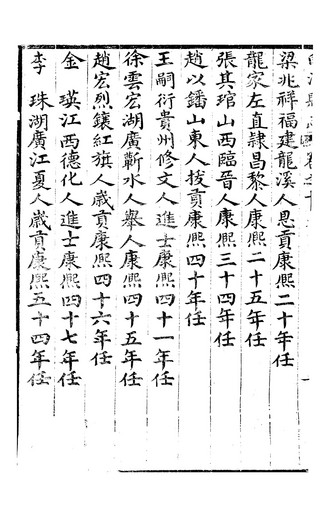 梁兆祥福建龍溪人恩貢康熙二十年任
龍家左直隸昌黎人康熙二十五年任
張其琯山西臨晉人康熙三十四年任
趙以鐇山東人拔貢康熙四十年任
王嗣衍貴州修文人進士康熙四十一年任
徐雲宏湖廣蘄水人舉人康熙四十五年任
趙宏烈鑲紅旗人歲貢康熙四十六年任
金　瑛江西德化人進士康熙四十七年任
李　珠湖廣江夏人歲貢康熙五十四年任